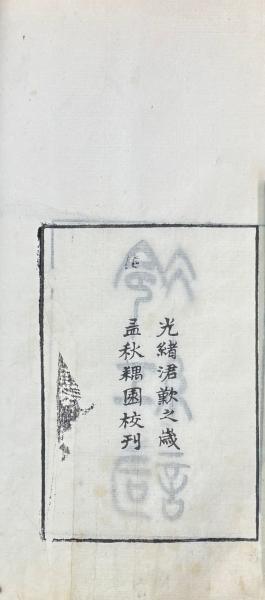 光緒涒歎之歲
孟秋耦園校刊